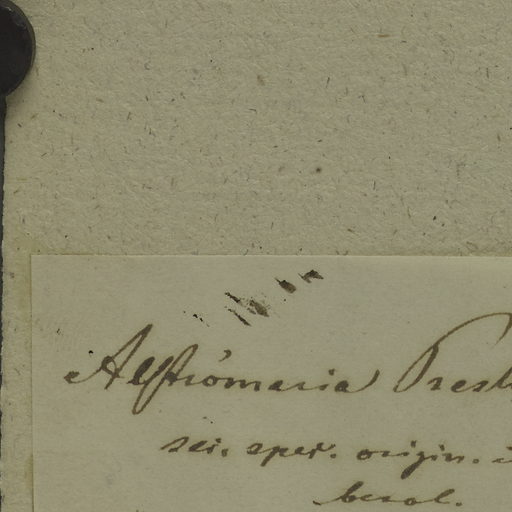 Alströmeria Presl
sec. spec. origin. i
berol.